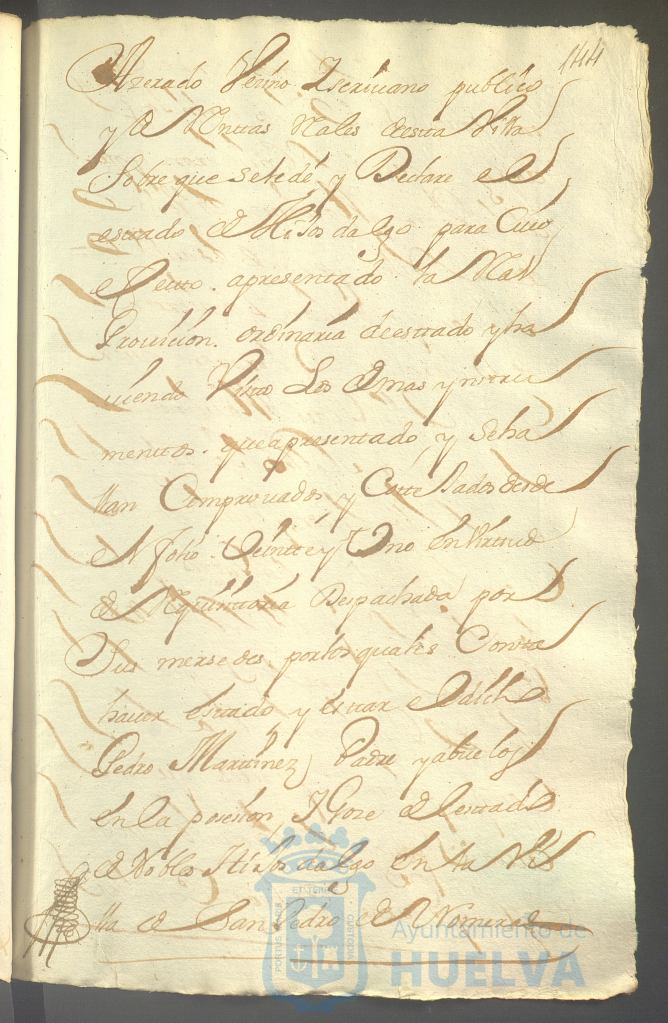 144
Azerado Vezino Iscriuano publico
y de Rentas Rales deesta Villa
Sobre que sele dé y Declare el
estado de Hijos dalgo para Cuio
efecto apresentado la Real
Prouicion ordinaria de estado y ha
uiendo Visto Los demas ynstru
mentos que apresentado y seha
llan Comprouados y Cotte Jados desde
el folio Veinte y Uno en Virtud
de Requisitoria Despachada por
Sus mersedes por los quales Consta
hauer estado y estar el dicho
Pedro Martinez, Padre y abuelos
en la posesion, y Goze del estado
de Nobles Hijos dalgo en la Vi
lla de San Pedro de
Ayuntamiento de
HUELVA
PORTUS MARIS
ET TERRE
CUSTODIA